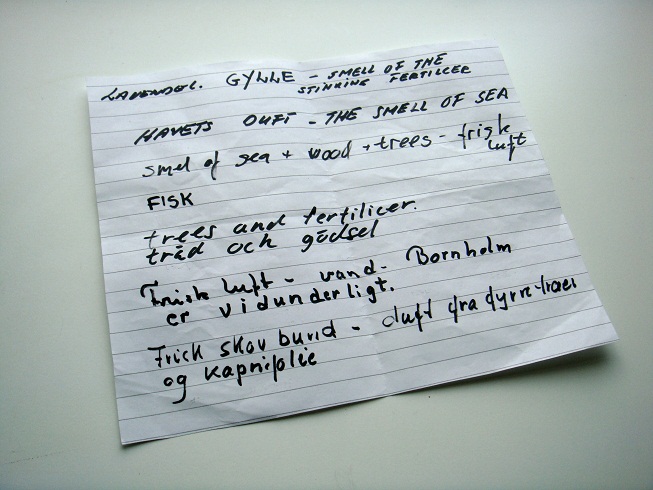 LAVENDEL. GYLLE - SMELL OF THE
STINKING FERTILICER
HAVETS DUFT - THE SMELL OF SEA
smel of sea + wood + trees - frisk
luft
FISK
trees and fertilicer.
träd och gödsel
Frisk luft - vand - Bornholm
er vidunderligt.
Frick skov bund - duft fra fyrre-træer
og kaprifolie